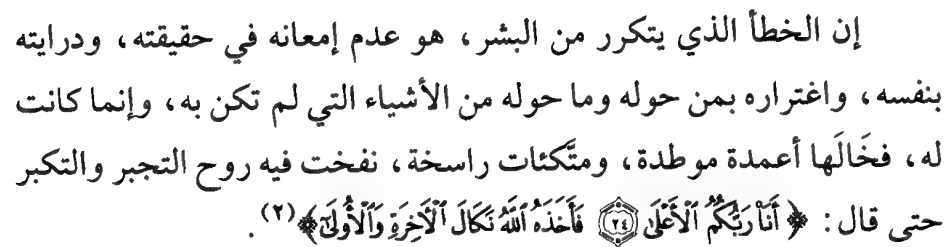 إن الخطأ الذي يتكرر من البشر، هو عدم إمعانه في حقيقته، ودرايته
بنفسه، واغتراره بمن حوله وما حوله من الأشياء التي لم تكن به، وإنما كانت
له، فخَالَها أعمدة موطدة، ومتَّكئات راسخة، نفخت فيه روح التجبر والتكبر
حتى قال: ﴿أَنَا۠ رَبُّكُمُ ٱلْأَعْلَىٰ ٢٤ فَأَخَذَهُ ٱللَّهُ نَكَالَ ٱلْأَخِرَةِ وَٱلْأُولَىٰٓ﴾(٢).